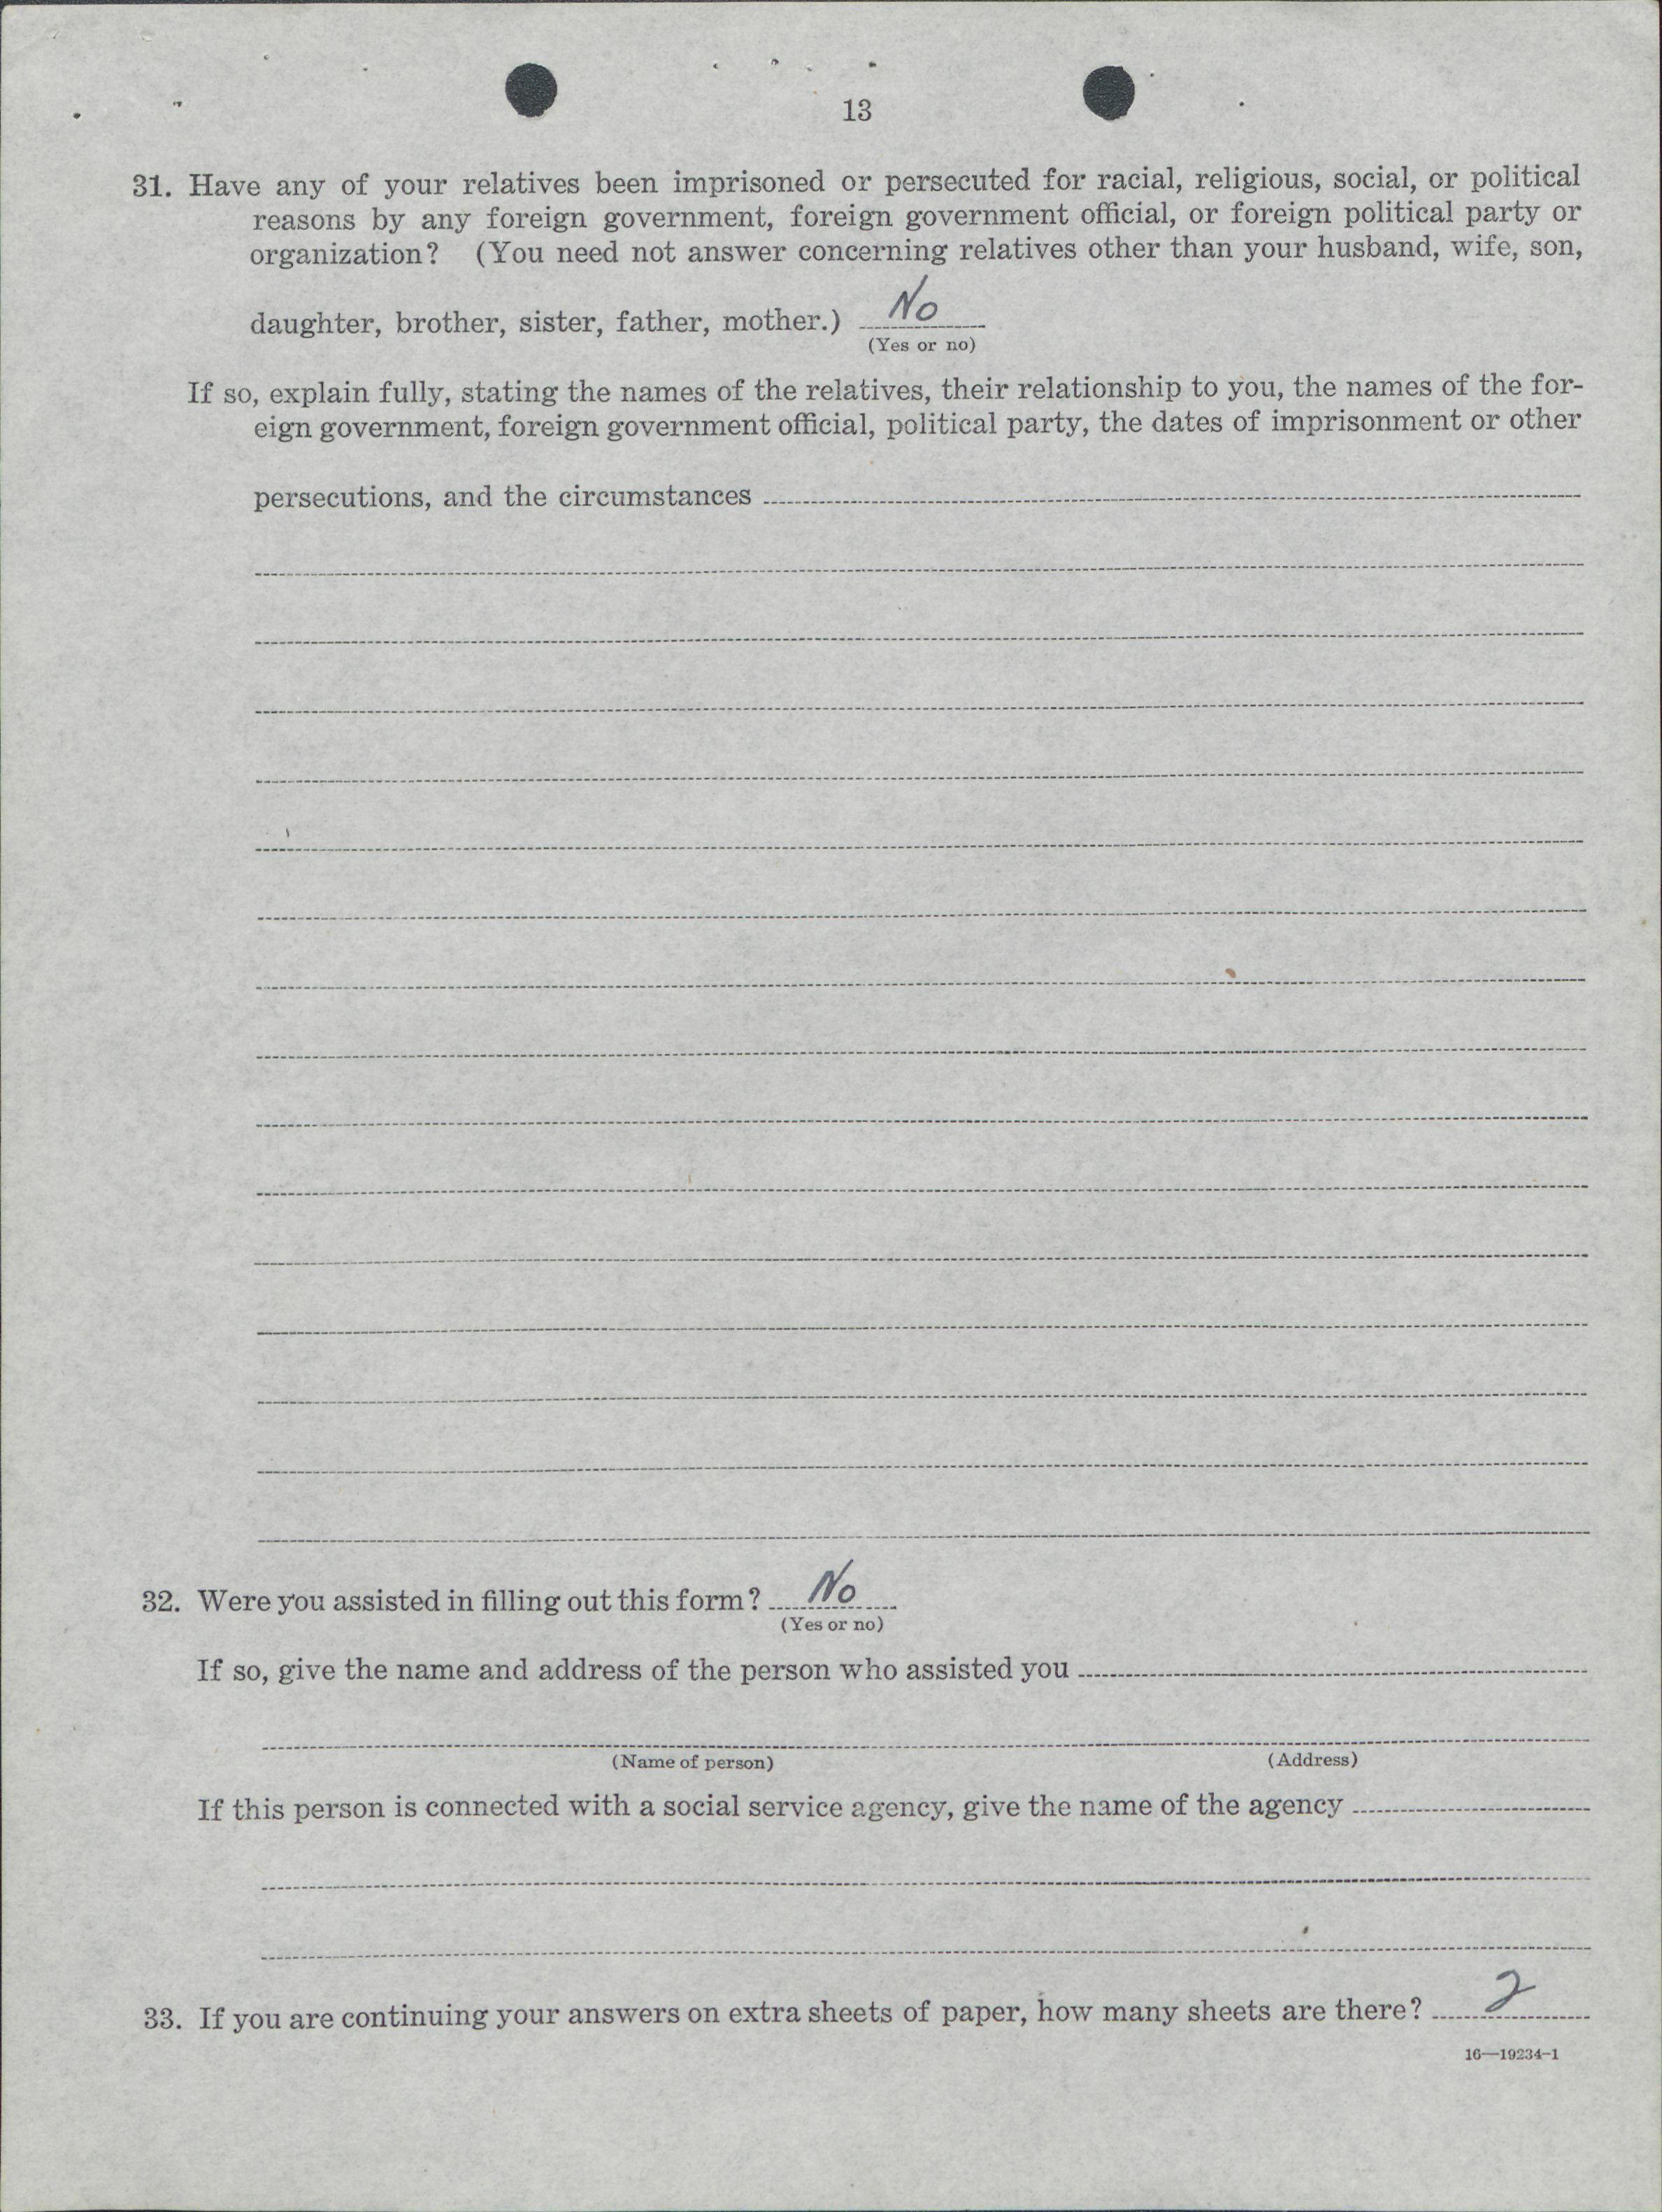 13
31. Have any of your relatives been imprisoned or persecuted for racial, religious, social, or political
reasons by any foreign government, foreign government official, or foreign political party or
organization? (You need not answer concerning relatives other than your husband, wife, son,
daughter, brother, sister, father, mother.) No
(Yes or no)
If so, explain fully, stating the names of the relatives, their relationship to you, the names of the for-
eign government, foreign government official, political party, the dates of imprisonment or other
persecutions, and the circumstances
32. Were you assisted in filling out this form? No
(Yes or no)
If so, give the name and address of the person who assisted you
(Name of person) (Address)
If this person is connected with a social service agency, give the name of the agency
33. If you are continuing your answers on extra sheets of paper, how many sheets are there? 2
16—19234-1